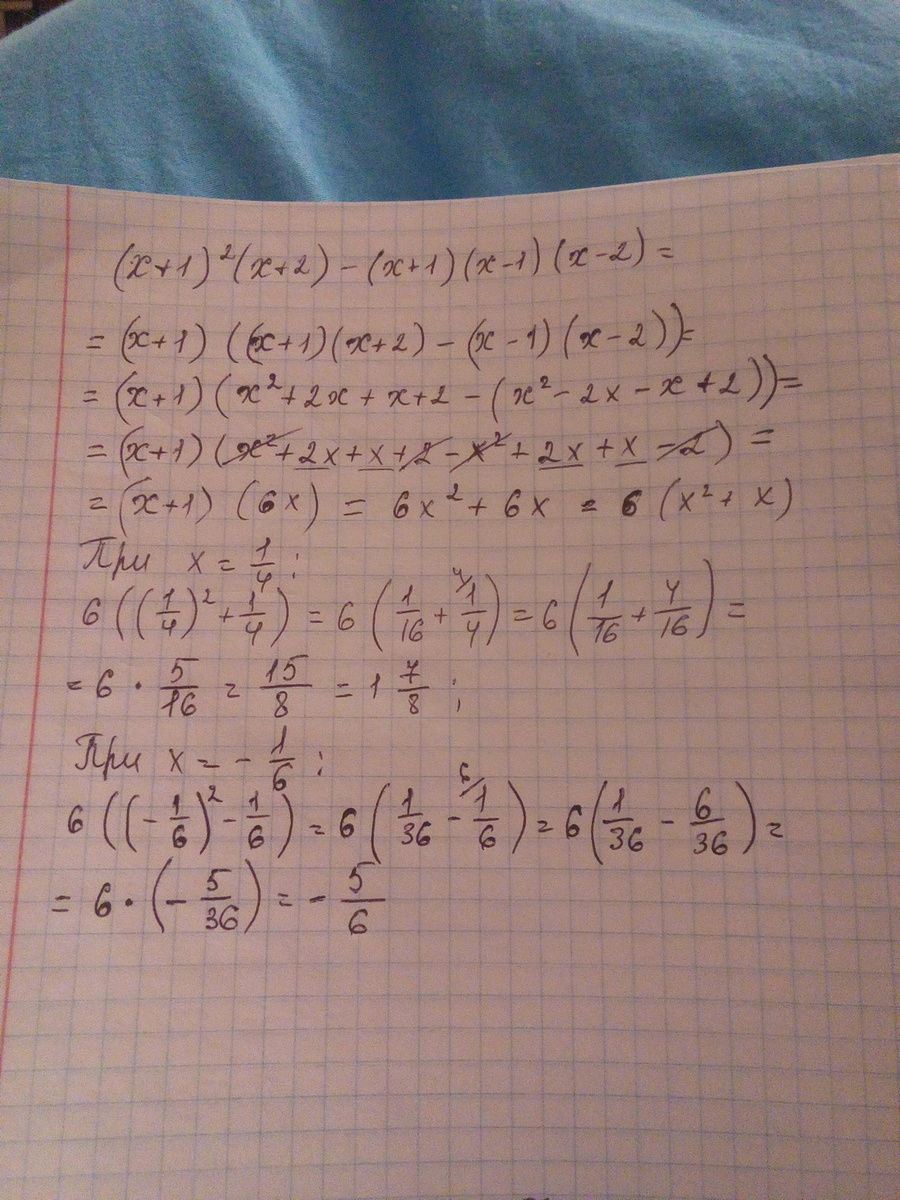 (x+1)²(x+2) - (x+1)(x-1)(x-2) =
= (x+1)((x+1)(x+2) - (x-1)(x-2)) =
= (x+1)(x² + 2x + x + 2 - (x² - 2x - x + 2)) =
= (x+1)(x² + 2x + x + 2 - x² + 2x + x - 2) =
= (x+1)(6x) = 6x² + 6x = 6(x² + x)
При x = 1/4 ;
6((1/4)² + 1/4) = 6(1/16 + ⁴⁄1/4) = 6(1/16 + 4/16) =
= 6 · 5/16 = 15/8 = 1 7/8 ;
При x = - 1/6 ;
6((-1/6)² - 1/6) = 6(1/36 - ⁶⁄1/6) = 6(1/36 - 6/36) =
= 6 · (- 5/36) = - 5/6